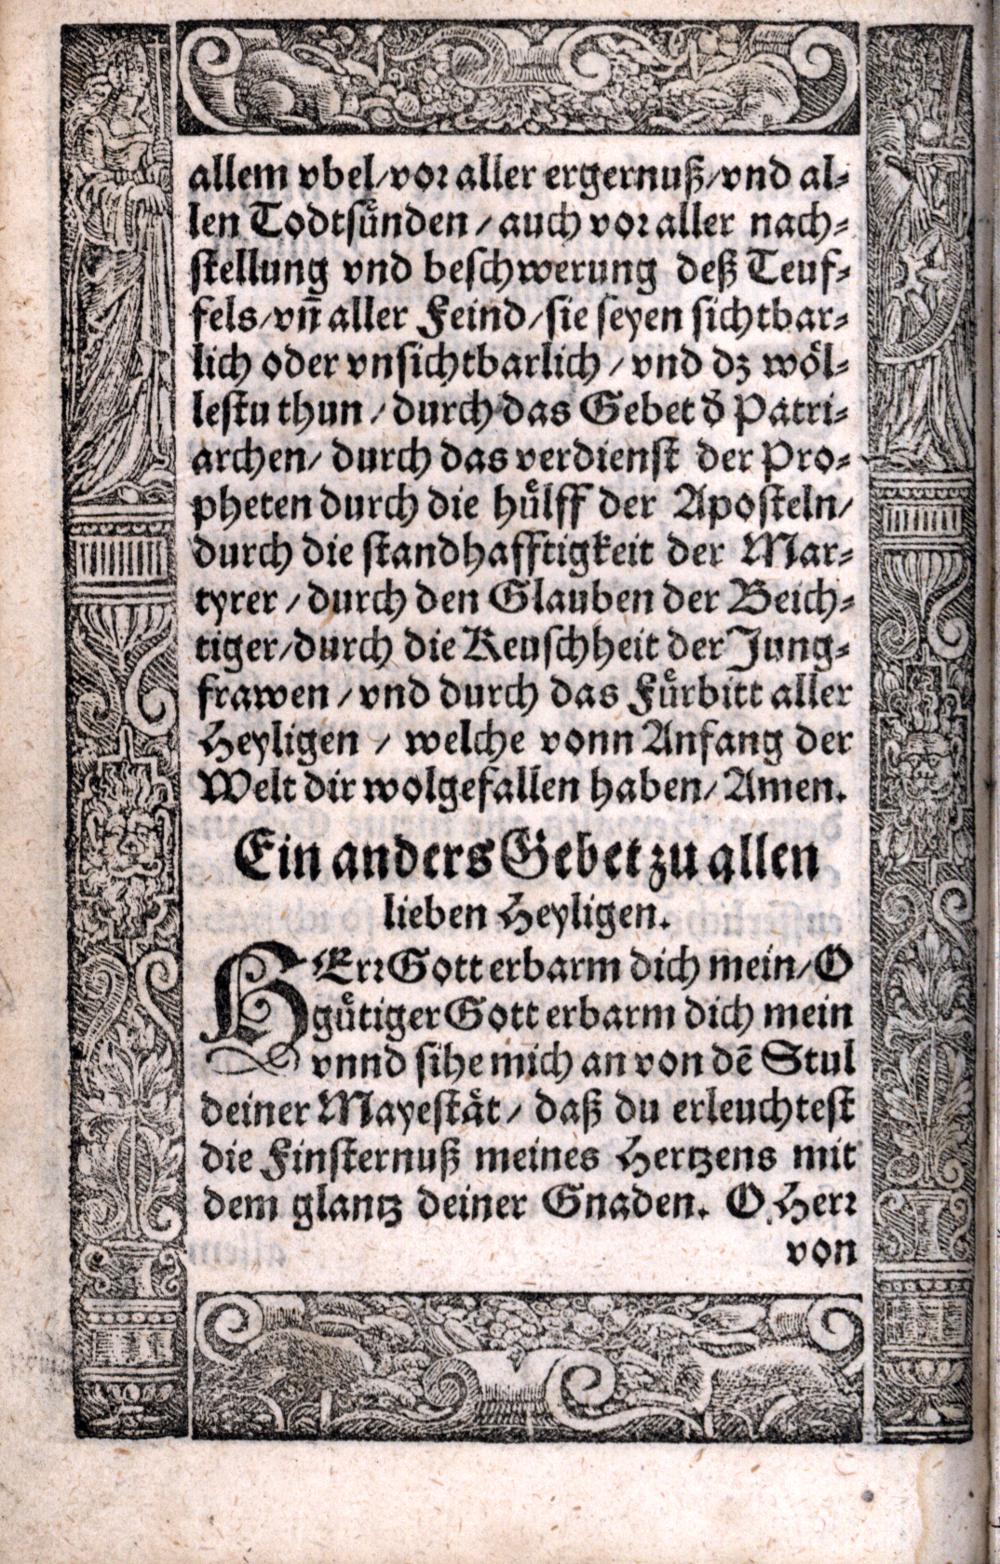 allem vbel/vor aller ergernuß/vnd al⸗
len Todtsuͤnden / auch vor aller nach⸗
stellung vnd beschwerung deß Teuf⸗
fels/vn̄ aller Feind/sie seyen sichtbar⸗
lich oder vnsichtbarlich / vnd dz woͤl⸗
lestu thun / durch das Gebet d̕ Patri⸗
archen/ durch das verdienst der Pro⸗
pheten durch die huͤlff der Aposteln/
durch die standhafftigkeit der Mar⸗
tyrer / durch den Glauben der Beich⸗
tiger/durch die Keuschheit der Jung⸗
frawen / vnd durch das Fuͤrbitt aller
Heyligen / welche vonn Anfang der
Welt dir wolgefallen haben/ Amen.
Ein anders Gebet zu allen
lieben Heyligen.
HErr Gott erbarm dich mein/ O
guͤtiger Gott erbarm dich mein
vnnd sihe mich an von dē Stul
deiner Mayestaͤt / daß du erleuchtest
die Finsternuß meines Hertzens mit
dem glantz deiner Gnaden. O Herr
von